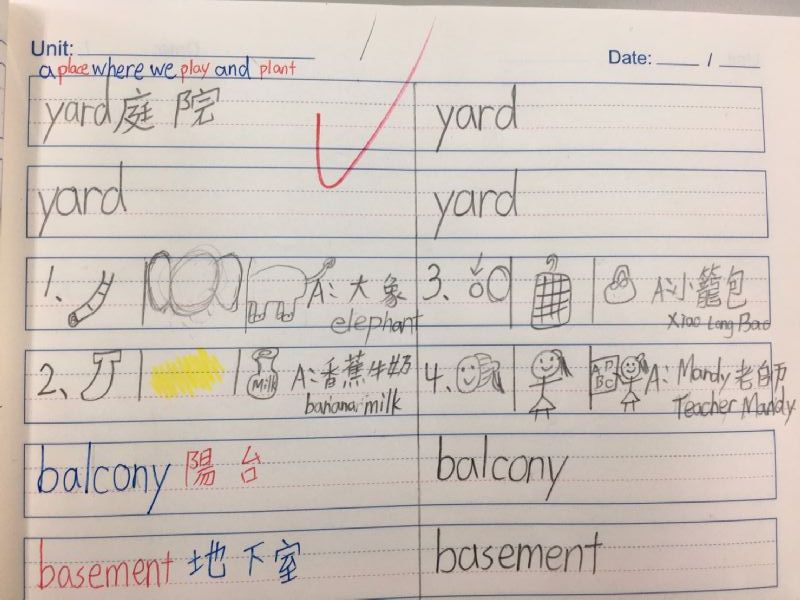 Unit:
Date: /
a place where we play and plant
yard 庭院
yard
yard
yard
1、 A:大象
elephant
3、 A:小籠包
Xiao Long Bao
2、 Milk A:香蕉牛奶
banana milk
4、 ABC A:Mandy老師
Teacher Mandy
balcony 陽台
balcony
basement 地下室
basement